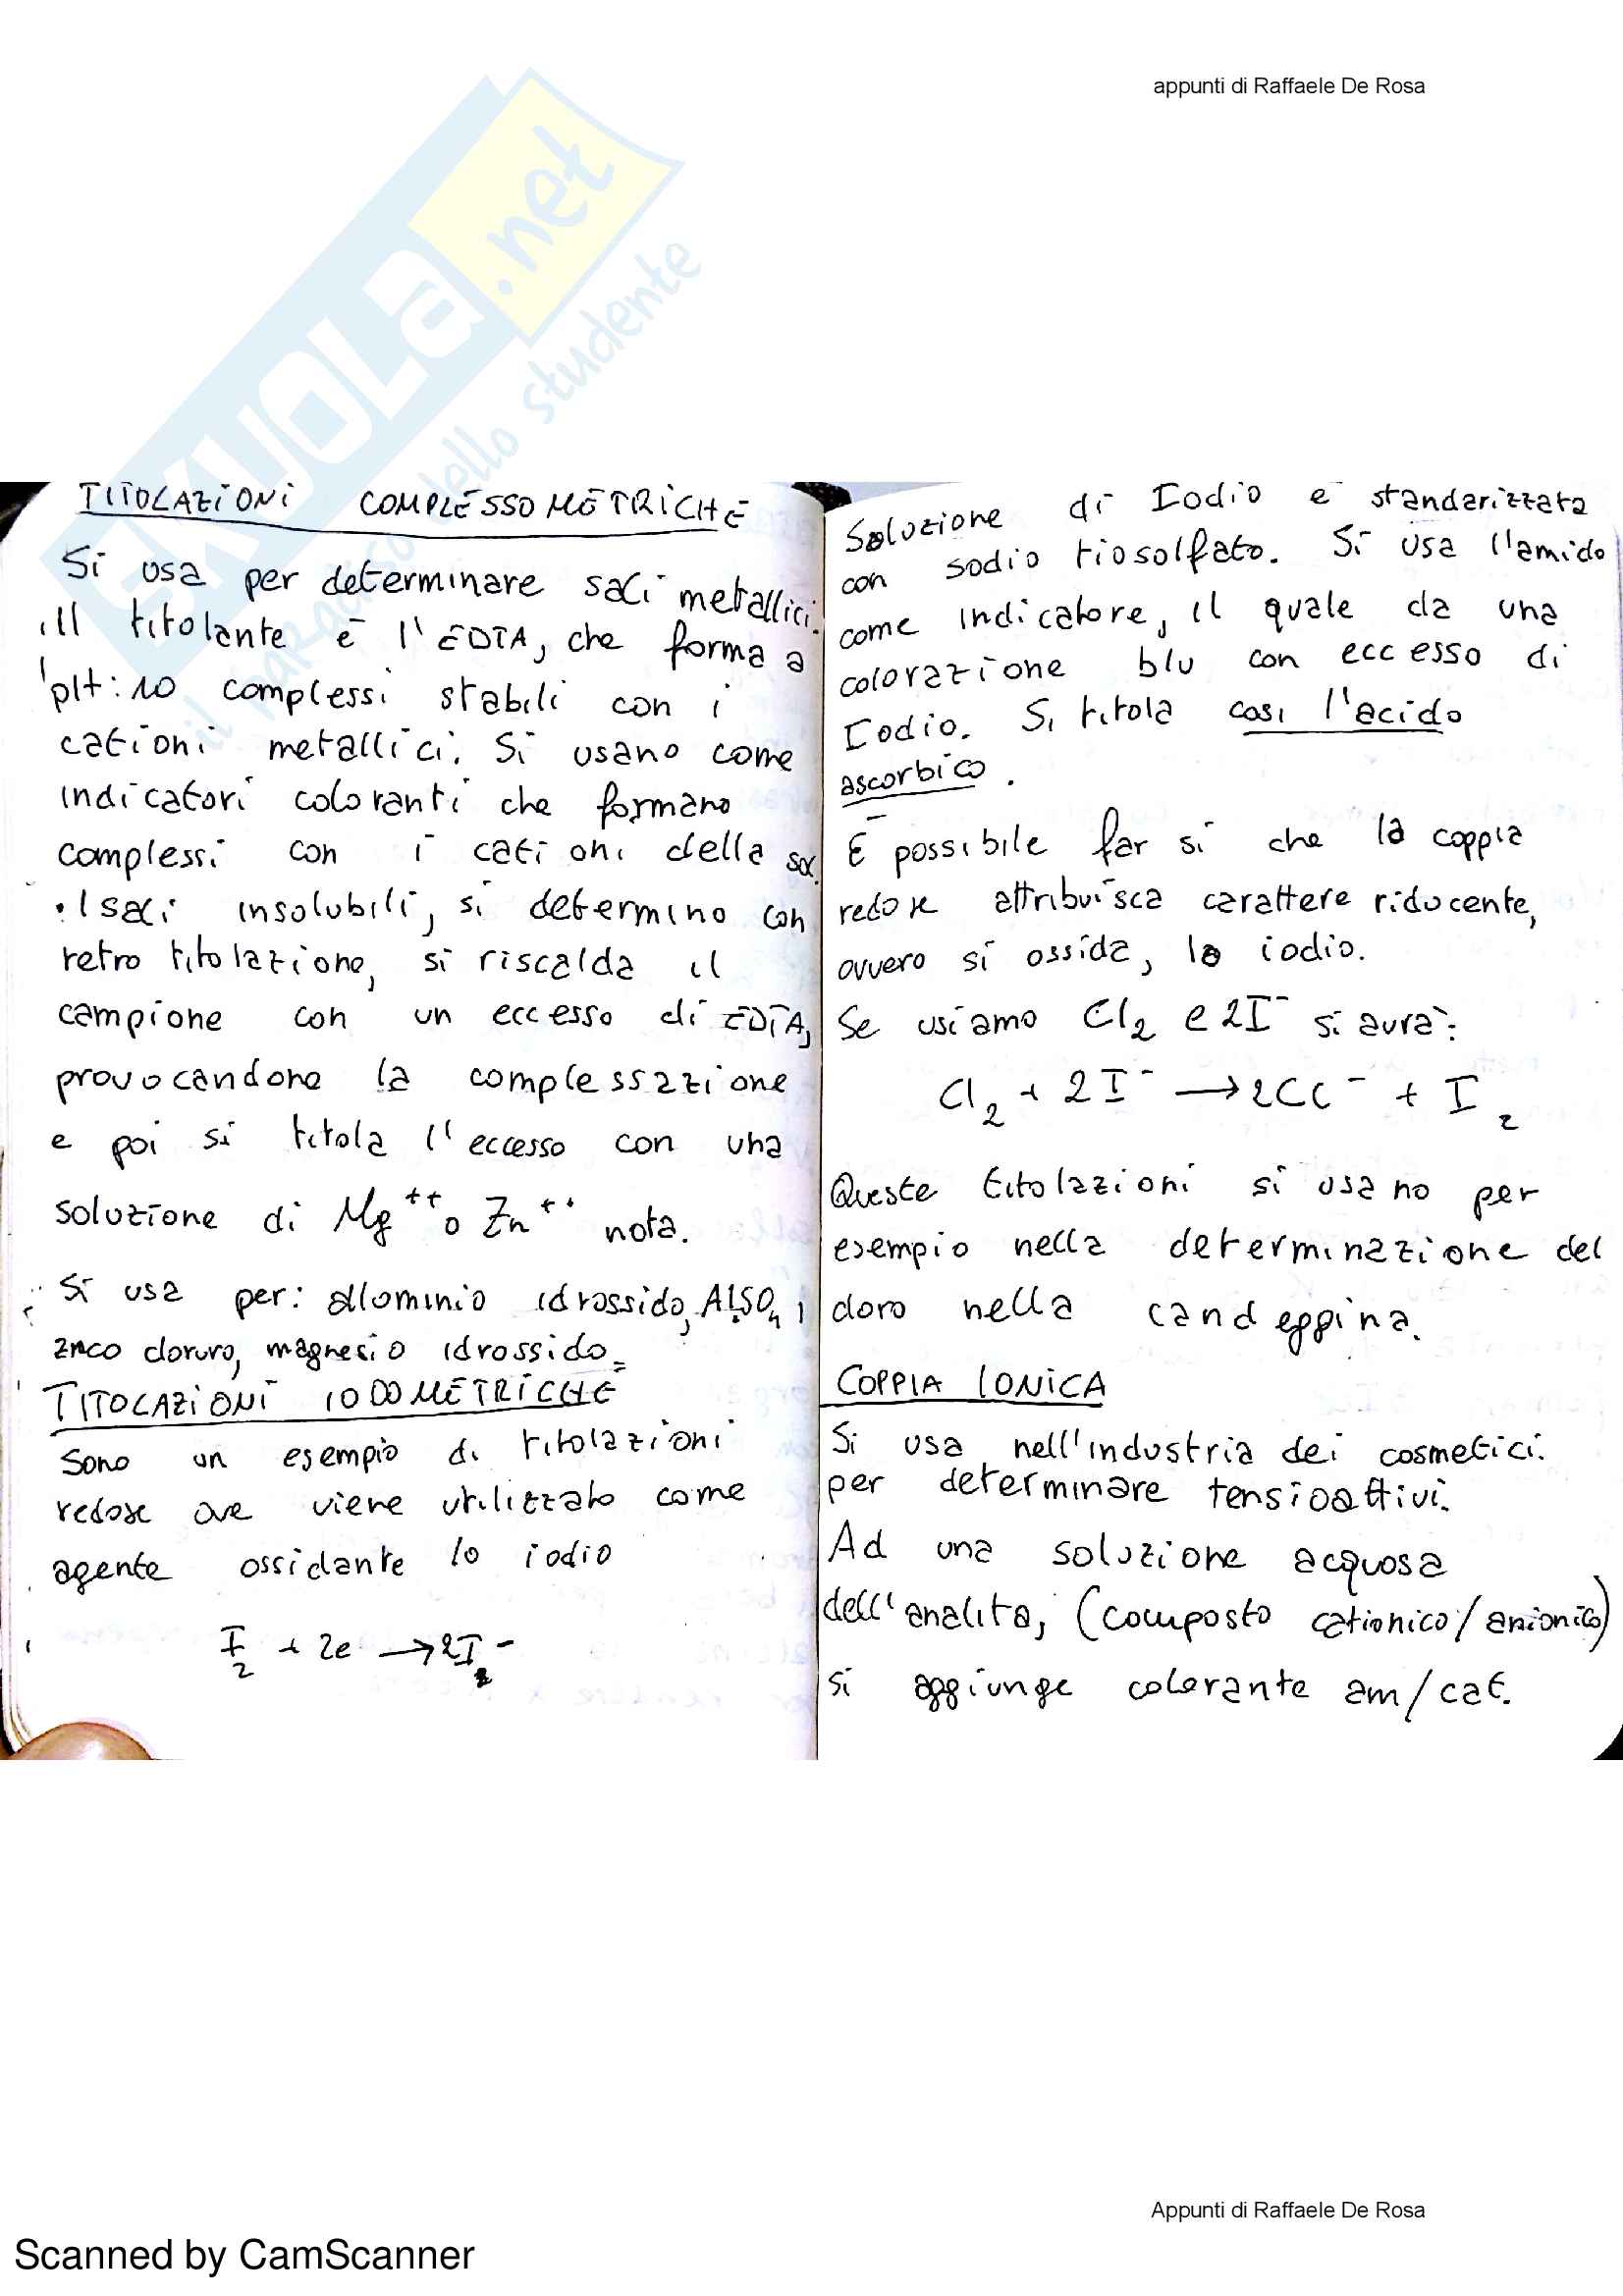 appunti di Raffaele De Rosa
SKUOLA.net
il paradiso dello studente
TITOLAZIONI COMPLESSOMETRICHE
Si usa per determinare sali metallici.
Il titolante è l'EDTA, che forma a
pH:10 complessi stabili con i
cationi metallici. Si usano come
indicatori coloranti che formano
complessi con i cationi della sol.
• I sali insolubili, si determino con
retro titolazione, si riscalda il
campione con un eccesso di EDTA,
provocandone la complessazione
e poi si titola l'eccesso con una
soluzione di Mg++ o Zn++ nota.
Si usa per: alluminio idrossido, AlSO4,
znco cloruro, magnesio idrossido.
TITOLAZIONI IODOMETRICHE
Sono un esempio di titolazioni
redox ove viene utilizzato come
agente ossidante lo iodio
I2 + 2e → 2I-
Soluzione di Iodio è standarizzata
con sodio tiosolfato. Si usa l'amido
come indicatore, il quale da una
colorazione blu con eccesso di
Iodio. Si titola così l'acido
ascorbico.
È possibile far si che la coppia
redox attribuisca carattere riducente,
ovvero si ossida, lo iodio.
Se usiamo Cl2 e 2I- si avrà:
Cl2 + 2I- → 2Cl- + I2
Queste titolazioni si usano per
esempio nella determinazione del
cloro nella candeggina.
COPPIA IONICA
Si usa nell'industria dei cosmetici
per determinare tensioattivi.
Ad una soluzione acquosa
dell'analita, (composto cationico/anionico)
si aggiunge colorante am/cat.
Appunti di Raffaele De Rosa
Scanned by CamScanner